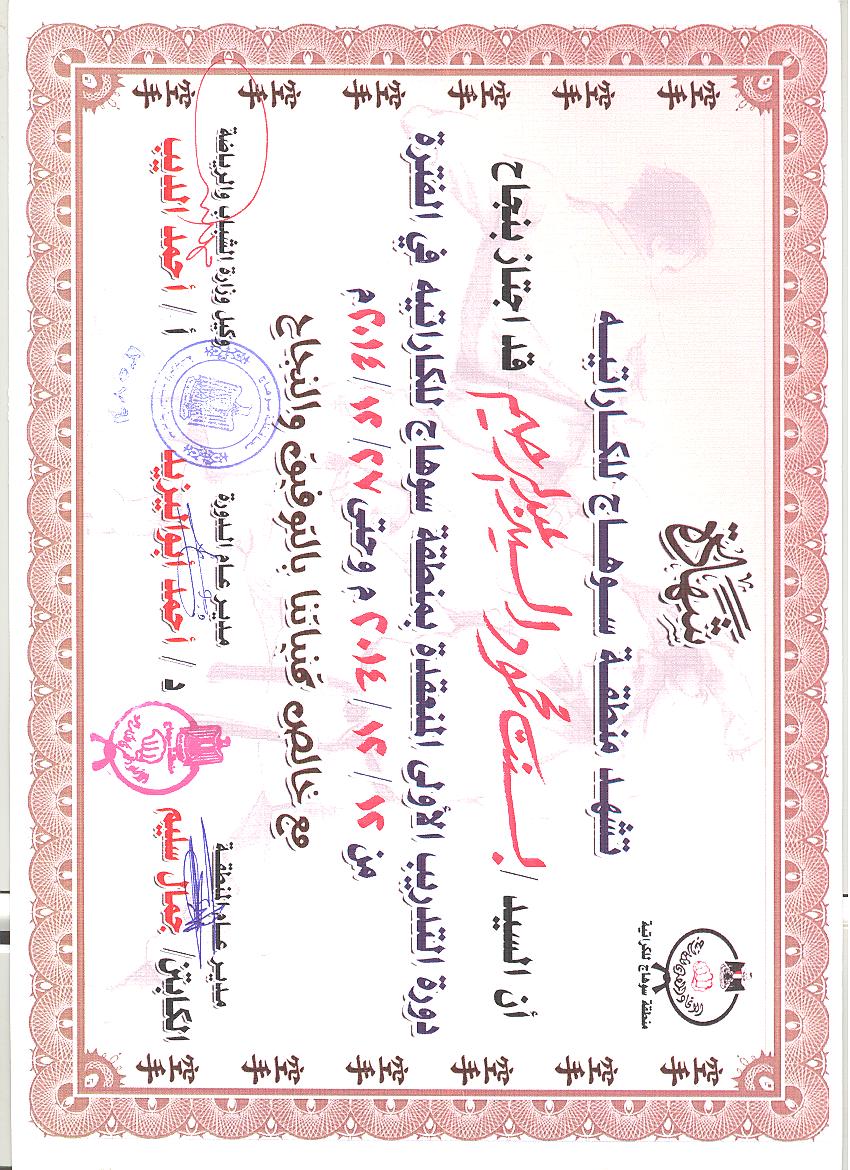 شهادة
منطقة سوهاج للكراتية
تشهد منطقة سوهاج للكاراتيه
أن السيد / بسنت محمود السيد عبدالرحيم قد اجتاز بنجاح
دورة التدريب الأولى المنعقدة بمنطقة سوهاج للكاراتيه في الفترة
من ١٢ / ١٢ / ٢٠١٤ م وحتى ٢٧ / ١٢ / ٢٠١٤ م
مع خالص تمنياتنا بالتوفيق والنجاح
مدير عام المنطقة مدير عام الدورة وكيل وزارة الشباب والرياضة
الكابتن/ جمال سليم د / أحمد أبواليزيد أ / أحمد الديب
空手 空手
空手 空手
空手 空手
空手 空手
空手 空手
空手 空手